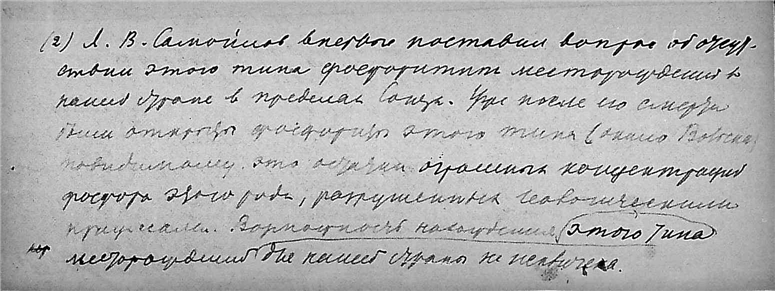 (2) Я. В. Самойлов впервые поставил вопрос об отсут-
ствии этого типа фосфоритных месторождений в
нашей стране в пределах Союза. Уже после его смерти
были открыты фосфориты этого типа (около
повидимому это остатки огромных концентраций
фосфора этого рода, разрушенных геологическими
процессами. Возможность нахождения этого типа
месторождений для нашей страны не исключена.